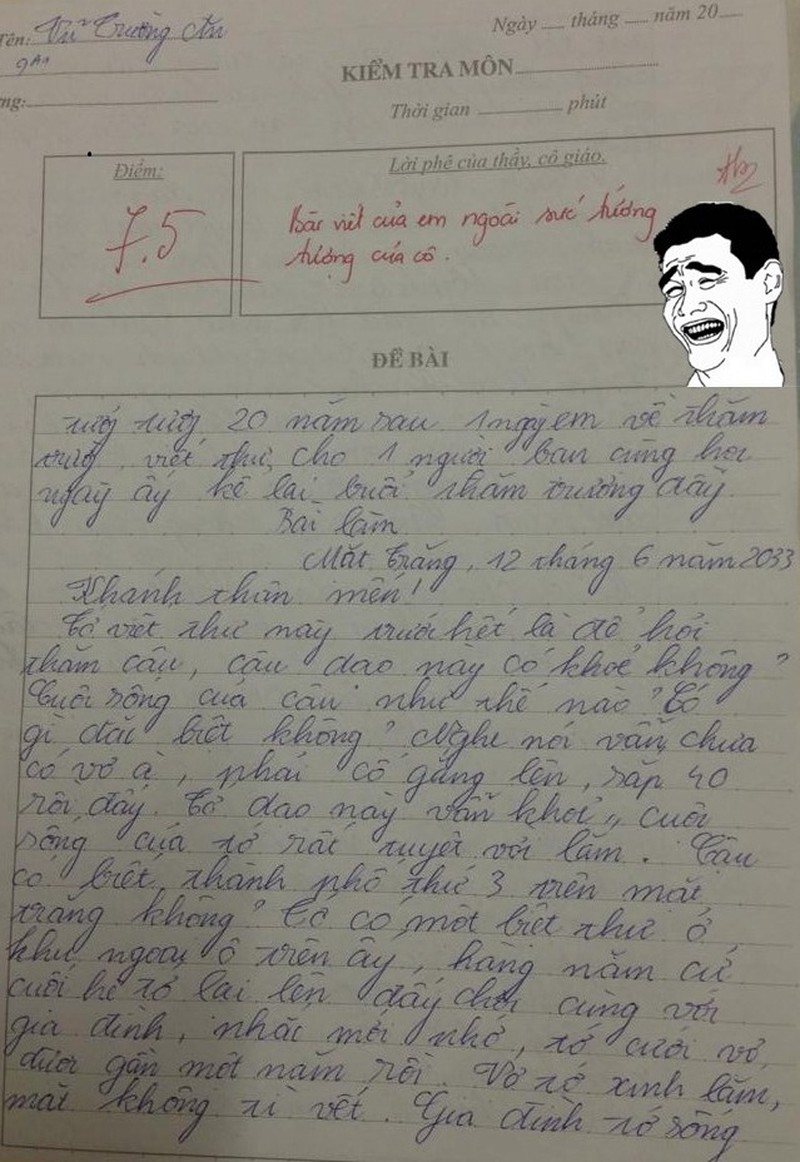 Ngày ..... tháng ..... năm 20.....
Tên: Vũ Trường An
9A1
KIỂM TRA MÔN
ng:
Thời gian ..... phút
Điểm:
Lời phê của thầy, cô giáo.
7.5
Bài viết của em ngoài sức tưởng
tượng của cô.
ĐỀ BÀI
tưởng tượng 20 năm sau 1 ngày em về thăm
trường, viết thư cho 1 người bạn cùng học
ngày ấy kể lại buổi thăm trường đấy
Bài làm
Mặt trăng, 12 tháng 6 năm 2033
Khánh thân mến!
Tớ viết thư này trước hết là để hỏi
thăm cậu, cậu dạo này có khoẻ không?
Cuộc sống của cậu như thế nào? Có
gì đặc biệt không? Nghe nói vẫn chưa
có vợ à, phải cố gắng lên, sắp 40
rồi đấy. Tớ dạo này vẫn khoẻ, cuộc
sống của tớ rất tuyệt vời lắm. Cậu
có biết thành phố thứ 3 trên mặt
trăng không? Tớ có một biệt thự ở
khu ngoại ô trên ấy, hàng năm cứ
cuối hè tớ lại lên đấy chơi cùng với
gia đình, nhắc mới nhớ, tớ cưới vợ
được gần một năm rồi. Vợ tớ xinh lắm,
mặt không tì vết. Gia đình tớ sống